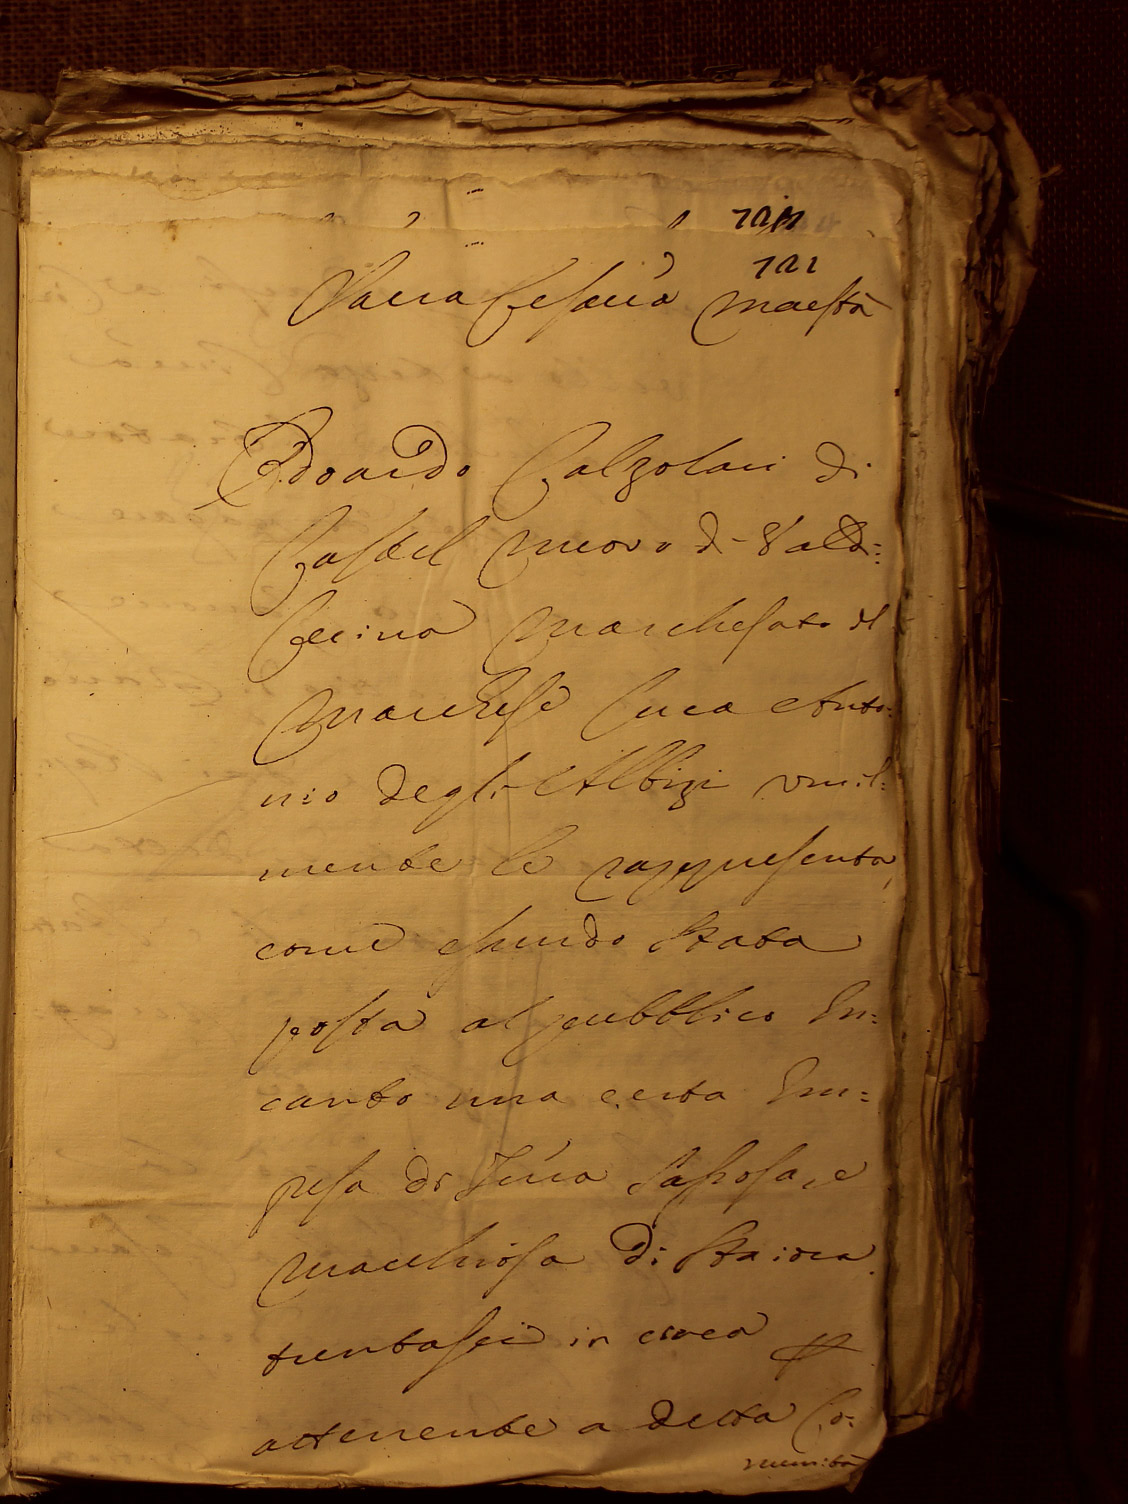 721
Sacra Cesarea Maestà
Edoardo Calzolari di
Castel Nuovo di Vald:
Cecina Marchesato del
Marchese Luca Anto:
nio degli Albizi umil:
mente le rappresenta,
come essendo stata
posta al pubblico In:
canto una certa Im:
presa di Terra Sassosa, e
macchiosa di staiora
trentasei in circa
attenente a detta Co:
munità